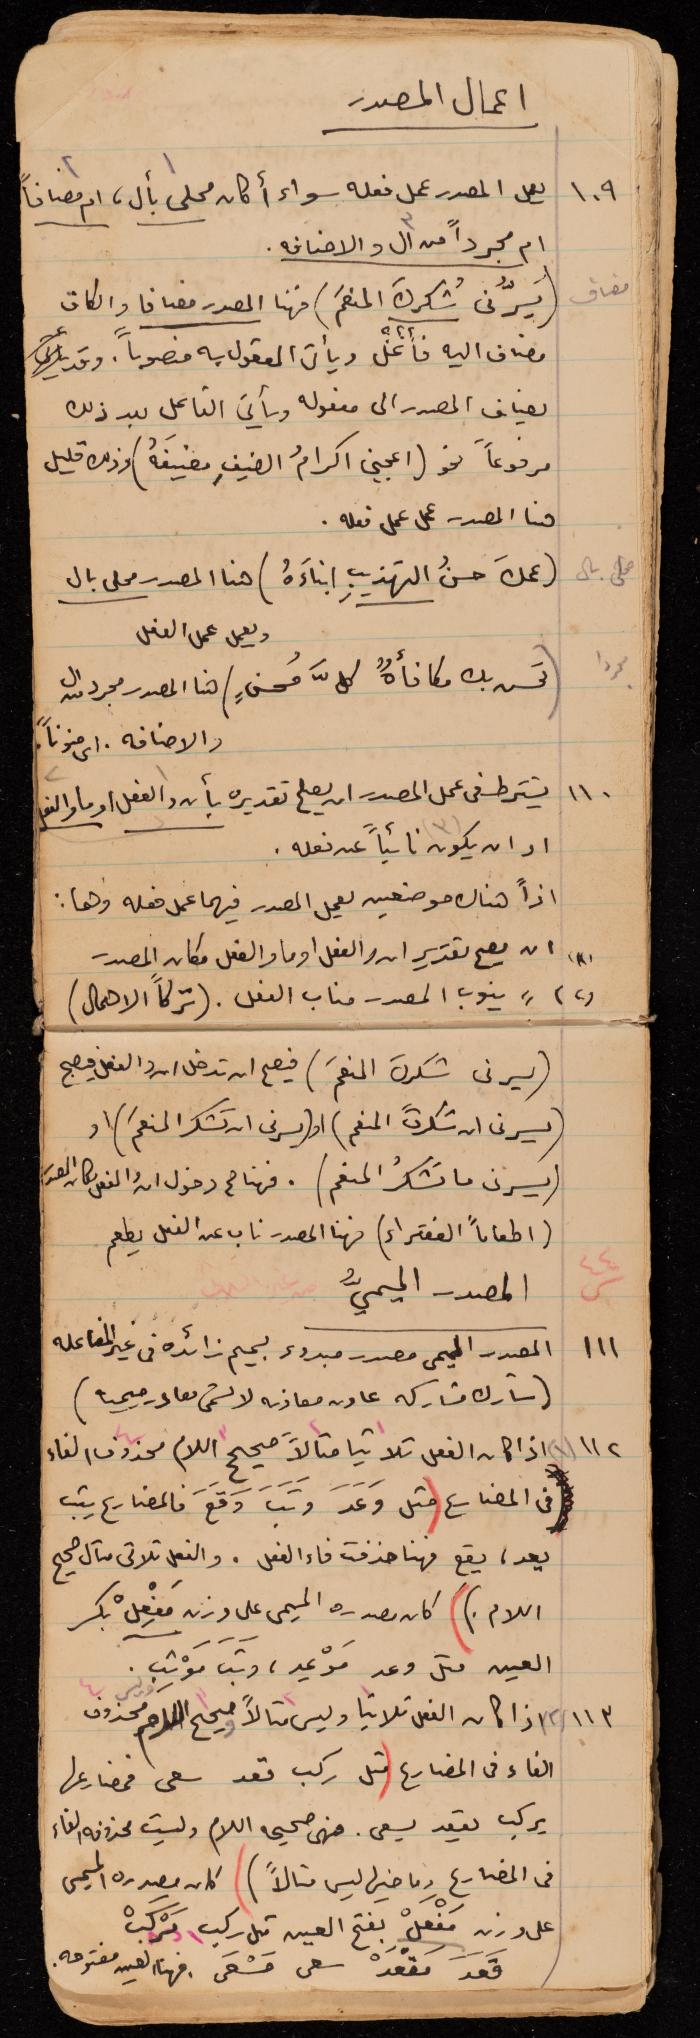 اعمال المصدر
١٠٩ يعمل المصدر عمل فعله سواء أكان محلى بأل، ام مضافاً
ام مجرداً من ال والاضافه.
مضاف (يَسرُّنى شُكركَ المنعمَ) فهنا المصدر مضافا والكاف
مضاف اليه فاعل ويأتى المفعول به منصوباً. وقد
يضاف المصدر الى مفعوله ويأتي الفاعل بعد ذلك
مرفوعاً نحو (اعجبني اكرامُ الضيفِ مضيفَهُ) وذلك قليل
هنا المصدر عمل عمل فعله.
محلى بال (عمك حسنُ التهذيبِ ابناءَهُ) هنا المصدر محلى بال
ويعمل عمل الفعل
مجردا (تحسن بك مكافأةٌ كلَّ محسنٍ) هنا المصدر مجرد من ال
والاضافه. اى منوناً.
١١٠ يشترط فى عمل المصدر ان يصلح تقديره بأن والفعل او ما والفعل
او ان يكون (٣) نائباً عن فعله.
اذاً هناك موضعين يعمل المصدر فيهما عمل فعله وهما:
(١) ان يصح تقدير ان والفعل او ما والفعل مكان المصدر
(٢) " ينوب المصدر مناب الفعل. (تركاً الاهمال)
(يسرنى شكرك المنعمَ) فيصح ان تدخل ان والفعل فيصبح
(يسرنى ان شكرتَ المنعم) او (يسرنى ان تشكر المنعمَ) او
(يسرنى ما تشكرُ المنعم). فهنا صح دخول ان والفعل مكان المصدر
(اطعاماً الفقراء) فهنا المصدر ناب عن الفعل يطعم
المصدر الميميُّ
١١١ المصدر الميمى مصدر مبدوء بميم زائده فى غير المفاعله
(شارك مشاركه عاون معاونه لا تسمى مصادر ميميه)
١١٢ (١) اذا كان الفعل ثلاثيا مثالاً صحيح اللام محذوف الفاء
فى المضارع (مثل وَعَدَ وَثَبَ وَقَعَ فالمضارع يثب
يعد، يقع فهنا حذفت فاء الفعل. والفعل ثلاثى مثال صحيح
اللام.) كان مصدره الميمى على وزن مَفْعِلْ بكسر
العين مثل وعد مَوْعِد، وثَبَ مَوْثِب.
١١٣ (٢) اذا كان الفعل ثلاثيا وليس مثالاً صحيح اللام وليس محذوف
الفاء فى المضارع (مثل ركب قعد سعى فمضارعها
يركب يقعد يسعى. فهى صحيحه اللام وليست محذوفه الفاء
فى المضارع وماضيها ليس مثالاً) كان مصدره الميمى
على وزن مَفْعَلْ بفتح العين مثل ركب مَرْكَبْ
قَعَدَ مَقْعَدْ سعى مَسْعَى. فهنا العين مفتوحه.